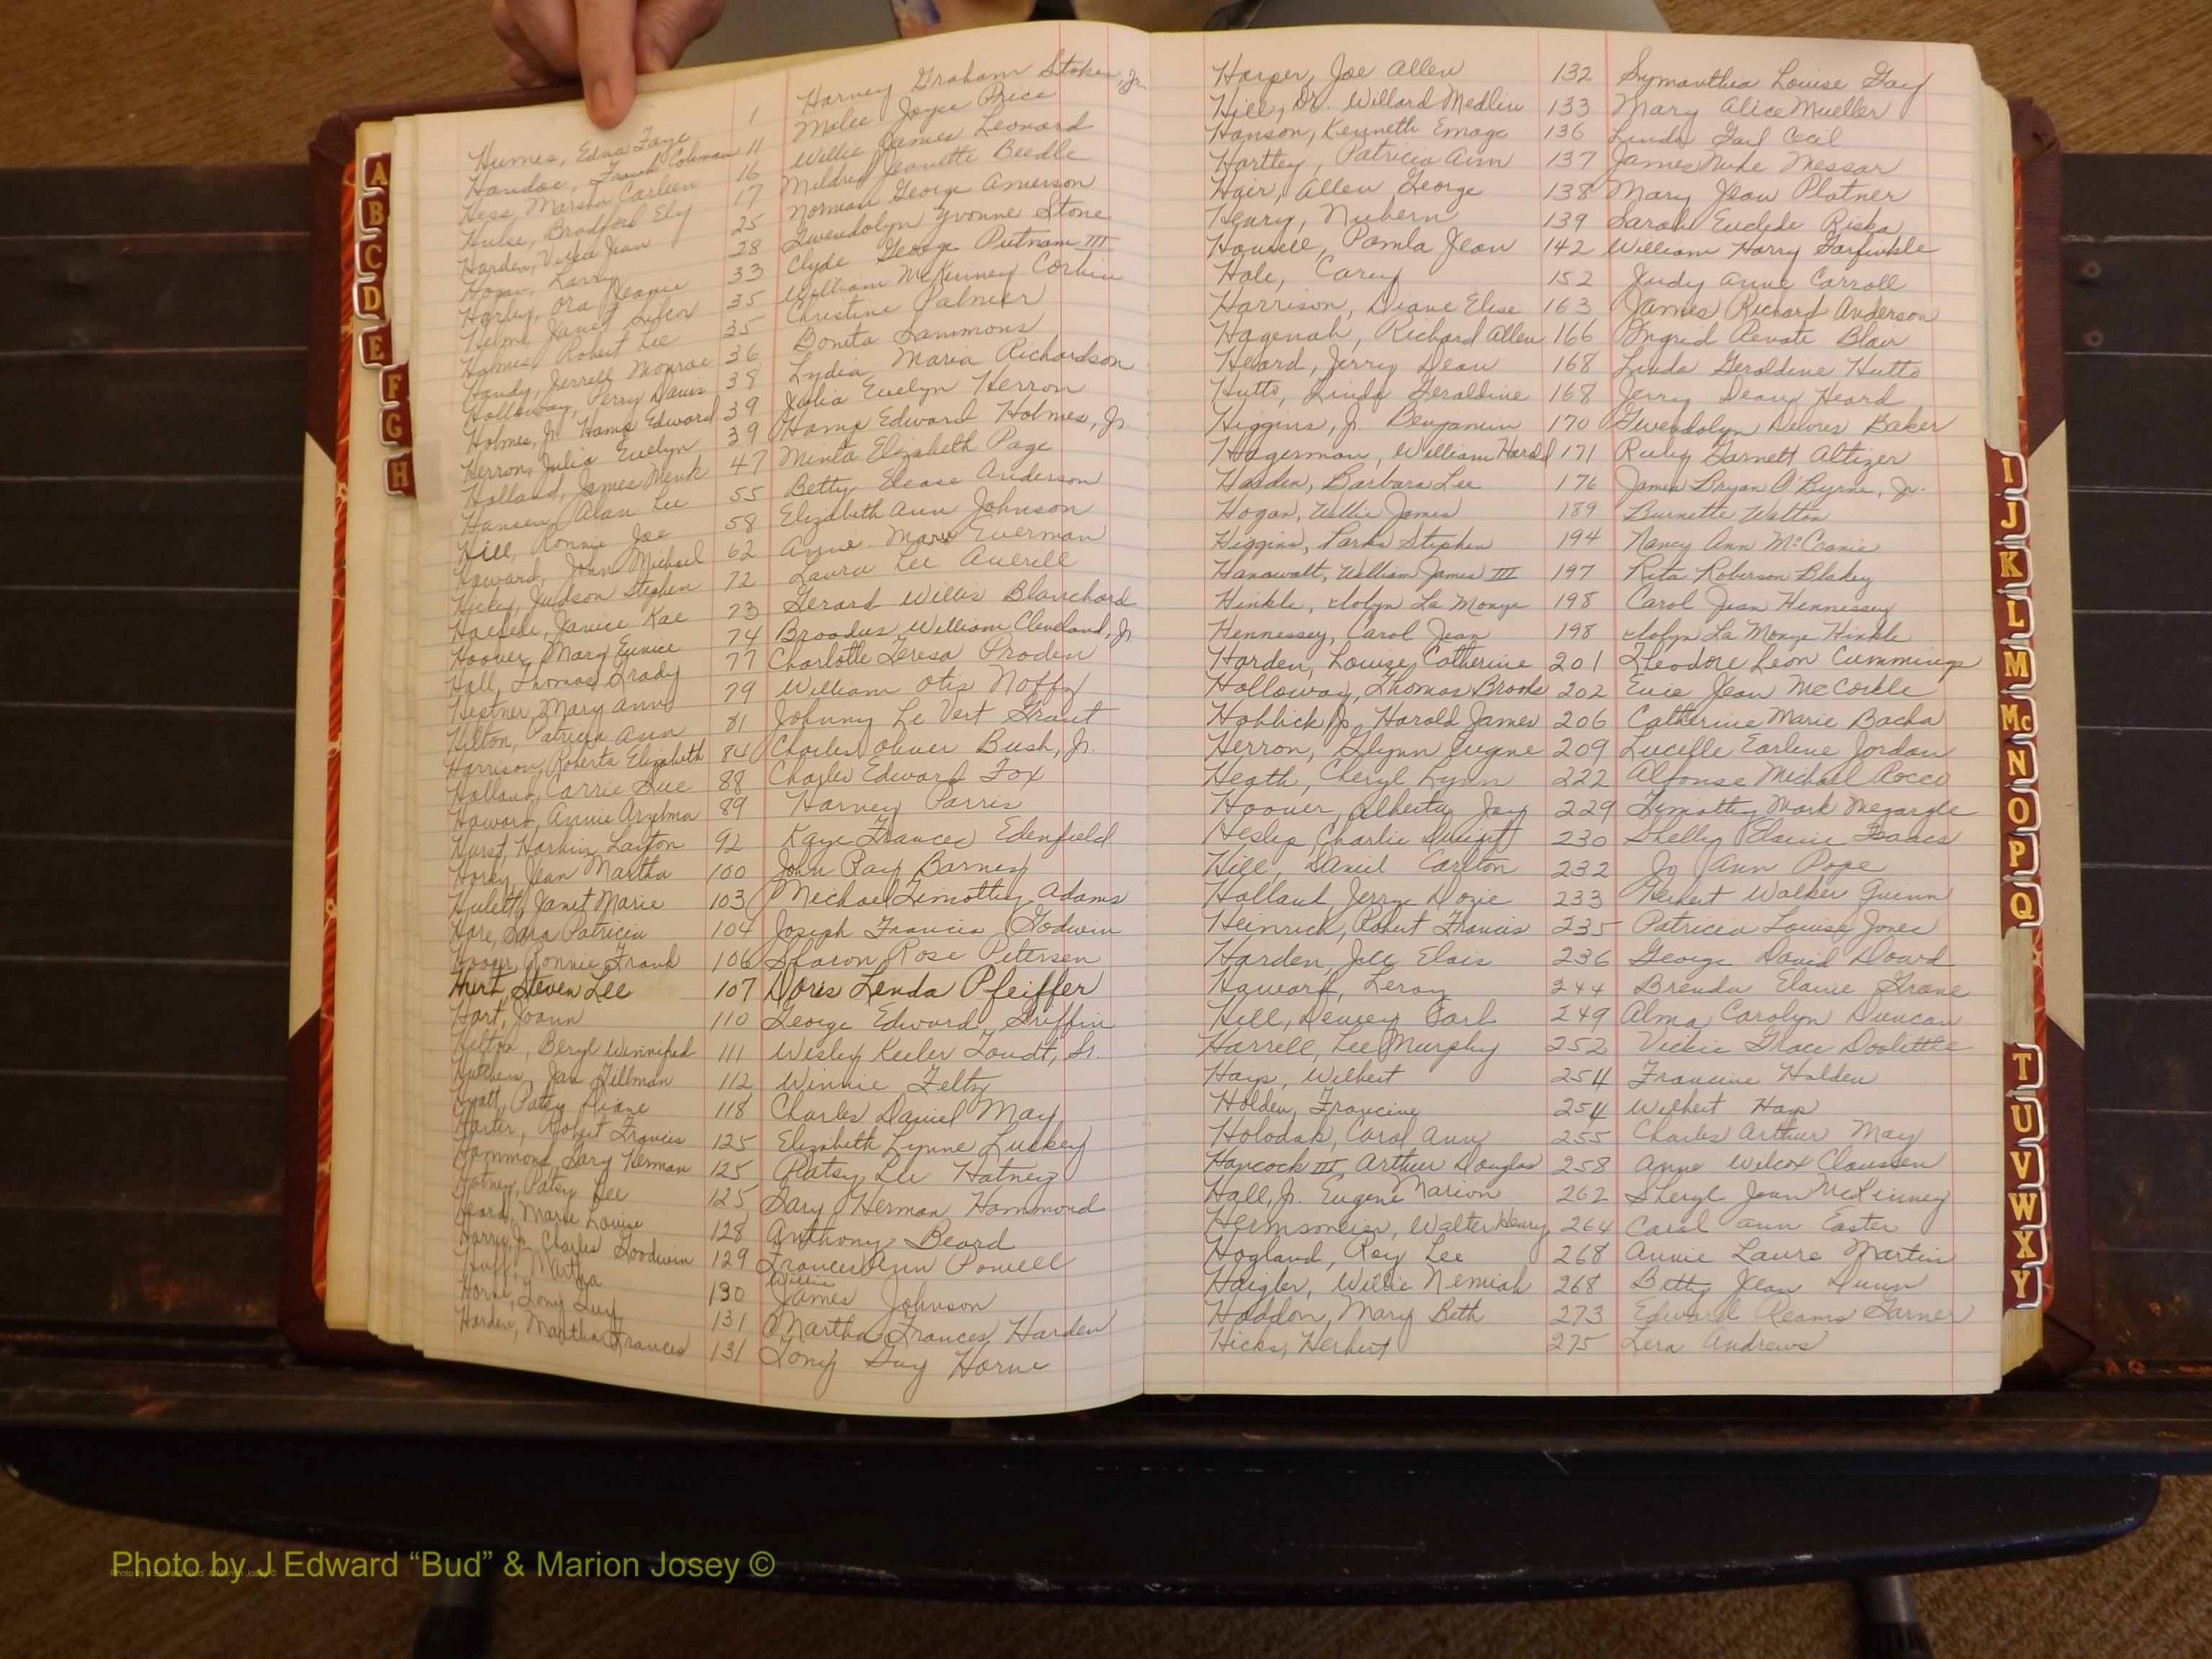 Humes, Edna Faye 1 Harvey Graham Stokes, Jr.
Frank Coleman 11 Melee Joyce Price
Hess, Marsha Carleen 16 Willie James Leonard
Hulse, Bradford Ely 17 Mildred Jeanette Beedle
Harden, Jean 25 Norman George Amerson
Hogan, Larry 28 Gwendolyn Yvonne Stone
Harley, Ora Jeanie 33 Clyde George Putnam III
Helms, Janet 35 William McKinney Corbin
Holmes, Robert Lee 35 Christine Palmer
Handy, Jerrell Monroe 36 Bonita Sammons
Holloway, Perry Davis 38 Lydia Maria Richardson
Holmes, Jr. Hamp Edward 39 Julia Evelyn Herron
Herron, Julia Evelyn 39 Hamp Edward Holmes, Jr.
Holland, James Menk 47 Minta Elizabeth Page
Hansen, Alan Lee 55 Betty Elease Anderson
Hill, Ronnie Joe 58 Elizabeth Ann Johnson
Howard, John Michael 62 Anne Marie Everman
Hickey, Judson Stephen 72 Laura Lee Averill
Haefele, Janice Kae 73 Gerard Willis Blanchard
Hoover, Mary Eunice 74 Broadus William Cleveland, Jr.
Hall, Thomas Grady 77 Charlotte Teresa Proden
Hestner, Mary Ann 79 William Otis
Hilton, Patricia Ann 81 Johnny Le Vert Grant
Harrison, Roberta Elizabeth 84 Charles Oliver Bush, Jr.
Holland, Carrie Sue 88 Charles Edward Fox
Howard, Annie Arzelma 89 Harvey Parris
Hurst, Harbin Layton 92 Kaye Frances Edenfield
Horky, Jean Martha 100 John Ray Barnes
Hulett, Janet Marie 103 Michael Timothy Adams
Hare, Sara Patricia 104 Joseph Francis Godwin
Ronnie Frank 106 Sharon Rose Petersen
Hurt, Steven Lee 107 Doris Lenda Pfeiffer
Hart, Joann 110 George Edward Griffin
Helton, Beryl Winnifred 111 Wesley Keeler Toudt, Sr.
Hutchens, Jan Tillman 112 Winnie Feltz
Hyatt, Patsy Diane 118 Charles Daniel May
Harter, Robert Francis 125 Elizabeth Lynne Luckey
Hammond, Gary Herman 125 Patsy Lee Hatney
Hatney, Patsy Lee 125 Gary Herman Hammond
Heard, Marie Louise 128 Anthony Beard
Harry, Jr. Charles Goodwin 129 Frances Ann Powell
Huff, Martha 130 Willie James Johnson
Horne, Tony Guy 131 Martha Frances Harden
Harden, Martha Frances 131 Tony Guy Horne
Harper, Joe Allen 132 Symanthia Louise Gay
Hill, Dr. Willard Medlin 133 Mary Alice Mueller
Hanson, Kenneth Emage 136 Linda Gail Cecil
Hartley, Patricia Ann 137 James Mike Messar
Hair, Allen George 138 Mary Jean Platner
Henry, Nubern 139 Sarah Euclede Riska
Howell, Pamla Jean 142 William Harry Garfinkle
Hale, Carey 152 Judy Anne Carroll
Harrison, Diane Elise 163 James Richard Anderson
Hagenah, Richard Allen 166 Ingrid Renate Blair
Heard, Jerry Dean 168 Linda Geraldine Hutto
Hutto, Linda Geraldine 168 Jerry Dean Heard
Higgins, Jr. Benjamin 170 Gwendolyn Delores Baker
Hagerman, William Harold 171 Ruby Garnett Altizer
Harden, Barbara Lee 176 James Bryan O'Byrne, Jr.
Hogan, Willie James 189 Burnette Walton
Higgins, Parks Stephen 194 Nancy Ann McCranie
Hanawalt, William James III 197 Rita Roberson Blakey
Hinkle, Jolyn La Monye 198 Carol Jean Hennessey
Hennessey, Carol Jean 198 Jolyn La Monye Hinkle
Harden, Louise Catherine 201 Theodore Leon Cummings
Holloway, Thomas Brooks 202 Evie Jean McCorkle
Hohlick Jr., Harold James 206 Catherine Marie Bacha
Herron, Glynn Eugene 209 Lucille Earlene Jordan
Heath, Cheryl Lynn 222 Alfonse Michael Rocco
Hoover, Alberta Joy 229 Timothy Mark Megargle
Heslep, Charlie Dwight 230 Shelly Elaine Isaacs
Hill, Daniel Carlton 232 Jo Ann Pope
Holland, Jerrye Dozie 233 Herbert Walker Guinn
Heinrich, Robert Francis 235 Patricia Louise Jones
Harden, Joce Elois 236 George David Dowd
Howard, Leroy 244 Brenda Elaine Grane
Hill, Dewey Earl 249 Alma Carolyn Duncan
Harrell, Lee Murphy 252 Vickie Grace Doolittle
Hays, Wilbert 254 Francine Holden
Holden, Francine 254 Wilbert Hays
Holodak, Carol Ann 255 Charles Arthur May
Hancock III, Arthur Douglas 258 Anne Wilcox Claussen
Hall, Jr. Eugene Marion 262 Sheryl Jean McKinney
Hermsonier, Walter Henry 264 Carol Ann Easter
Hogland, Roy Lee 268 Annie Laure Martin
Haigler, Willie Nemiah 268 Betty Jean Dunn
Haddon, Mary Beth 273 Edward Reams Garner
Hicks, Herbert 275 Lera Andrews
A
B
C
D
E
F
G
H
I
J
K
L
M
Mc
N
O
P
Q
T
U
V
W
X
Y
Photo by J Edward “Bud” & Marion Josey ©